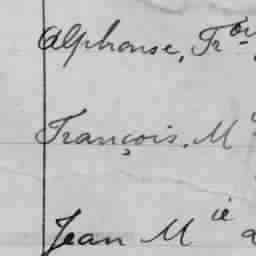 Alphonse, Fr
François. M
Jean Mie